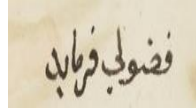 فضولي فرمايد